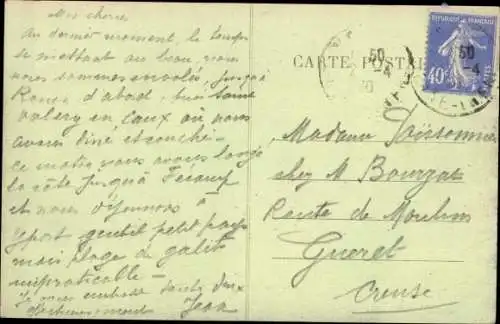 Mes chères
Au dernier moment, le temps
se mettant au beau, nous
nous sommes envolés, jusqu'à
Rouen d'abord, puis Saint
Valery en Caux où nous
avons diné et couché -
ce matin nous avons longé
la côte jusqu'à Fécamp
et nous déjeunons à
Yport gentil petit pays
mais plage de galets
impraticable -
Je vous embrasse toutes deux
affectueusement Jean
CARTE POSTALE
RÉPUBLIQUE FRANÇAISE
40c
50
-4
50
-4
Madame
chez M Bourzat
Route de Moulins
Guéret
Creuse